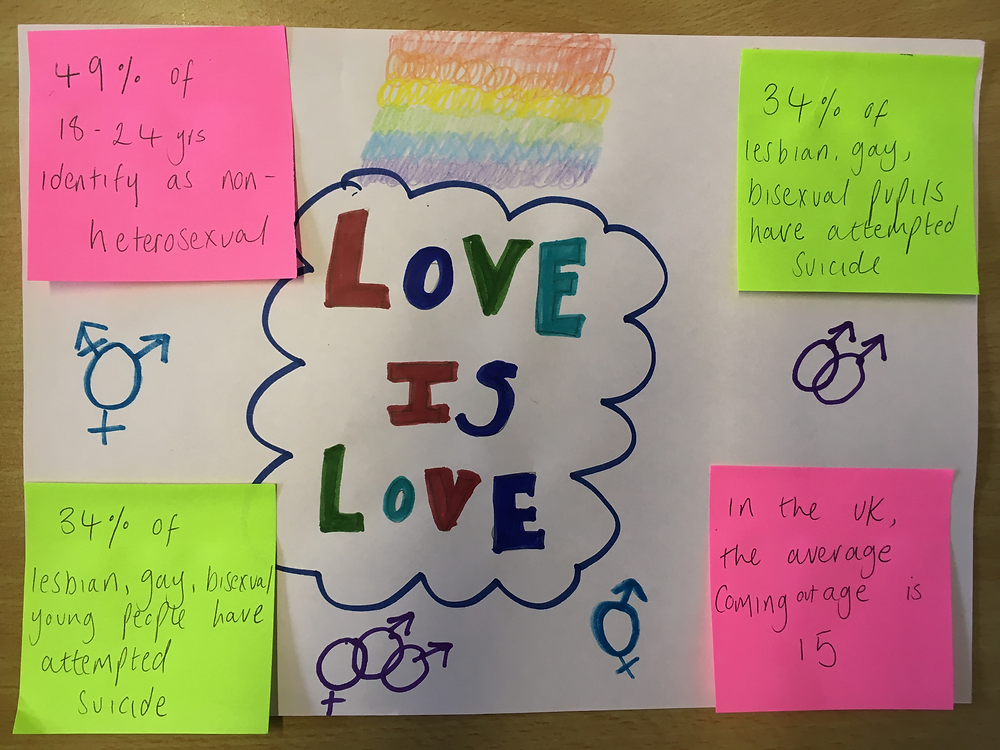 49% of
18-24 yrs
identify as non-
heterosexual
34% of
lesbian, gay,
bisexual pupils
have attempted
suicide
LOVE
IS
LOVE
34% of
lesbian, gay, bisexual
young people have
attempted
suicide
In the UK,
the average
coming out age is
15